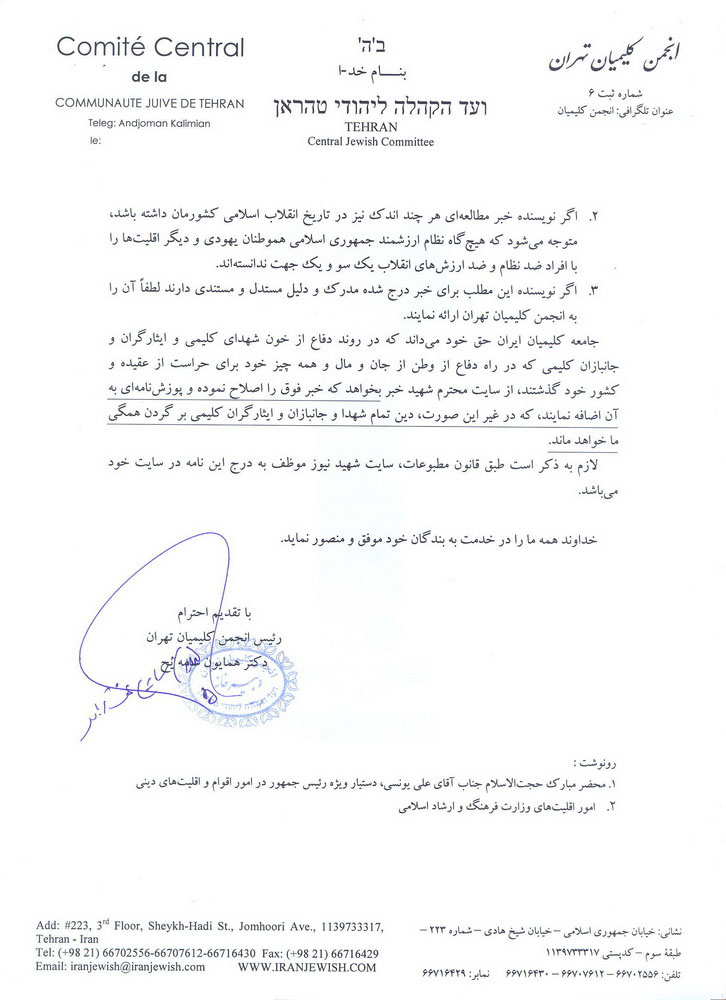 Comité Central
de la
COMMUNAUTE JUIVE DE TEHRAN
Teleg: Andjoman Kalimian
le:
ב'ה'
بنـــام خد-ا
ועד הקהלה ליהודי טהראן
TEHRAN
Central Jewish Committee
انجمن کلیمیان تهران
شماره ثبت ۶
عنوان تلگرافی: انجمن کلیمیان
۲. اگر نویسنده خبر مطالعه‌ای هر چند اندک نیز در تاریخ انقلاب اسلامی کشورمان داشته باشد،
متوجه می‌شود که هیچ‌گاه نظام ارزشمند جمهوری اسلامی هموطنان یهودی و دیگر اقلیت‌ها را
با افراد ضد نظام و ضد ارزش‌های انقلاب یک سو و یک جهت ندانسته‌اند.
۳. اگر نویسنده این مطلب برای خبر درج شده مدرک و دلیل مستدل و مستندی دارند لطفاً آن را
به انجمن کلیمیان تهران ارائه نمایند.
جامعه کلیمیان ایران حق خود می‌داند که در روند دفاع از خون شهدای کلیمی و ایثارگران و
جانبازان کلیمی که در راه دفاع از وطن از جان و مال و همه چیز خود برای حراست از عقیده و
کشور خود گذشتند، از سایت محترم شهید خبر بخواهد که خبر فوق را اصلاح نموده و پوزش‌نامه‌ای به
آن اضافه نمایند، که در غیر این صورت، دین تمام شهدا و جانبازان و ایثارگران کلیمی بر گردن همگی
ما خواهد ماند.
لازم به ذکر است طبق قانون مطبوعات، سایت شهید نیوز موظف به درج این نامه در سایت خود
می‌باشد.
خداوند همه ما را در خدمت به بندگان خود موفق و منصور نماید.
با تقدیم احترام
رئیس انجمن کلیمیان تهران
دکتر همایون سامه یح
رونوشت :
۱. محضر مبارک حجت‌الاسلام جناب آقای علی یونسی، دستیار ویژه رئیس جمهور در امور اقوام و اقلیت‌های دینی
۲. امور اقلیت‌های وزارت فرهنگ و ارشاد اسلامی
Add: #223, 3rd Floor, Sheykh-Hadi St., Jomhoori Ave., 1139733317,
Tehran - Iran
Tel: (+98 21) 66702556-66707612-66716430 Fax: (+98 21) 66716429
Email: iranjewish@iranjewish.com WWW.IRANJEWISH.COM
نشانی: خیابان جمهوری اسلامی – خیابان شیخ هادی – شماره ۲۲۳ –
طبقهٔ سوم – کدپستی ۱۱۳۹۷۳۳۳۱۷
تلفن: ۶۶۷۰۲۵۵۶ – ۶۶۷۰۷۶۱۲ – ۶۶۷۱۶۴۳۰ نمابر: ۶۶۷۱۶۴۲۹